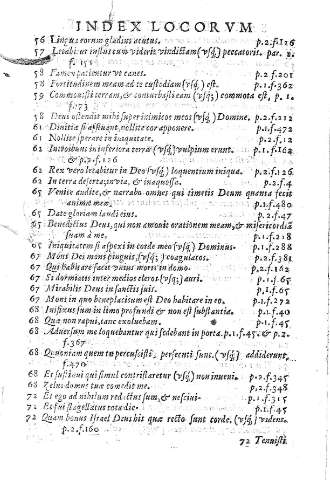 INDEX LOCORVM
56 Lingua eorum gladius acutus. p.2.f.126
57 Letabitur iustus cum viderit vindictam (vsq;) peccatoris. par. 2.
f. 151
58 Famem patientur vt canes. p.2.f.201
58 Fortitudinem meam ad te custodiam (vsq;) est. p.1.f.362
59 Commouisti terram, & conturbasti eam (vsq;) commota est, p. 1.
f.73
58 Deus ostendit mihi super inimicos meos (vsq;) Domine. p.2.f.212
61 Diuitiæ si affluant, nolite cor apponere. p.1.f.472
61 Nolite sperare in iniquitate. p.2.f.12
62 Introibunt in inferiora terræ (vsq;) vulpium erunt. p.1.f.162
& p.2.f.126
62 Rex vero lætabitur in Deo (vsq;) loquentium iniqua. p.2.f.126.
62 In terra deserta, inuia, & inaquosa. p.2.f.4
65 Venite audite, & narrabo omnes qui timetis Deum quanta fecit
animæ meæ. p.1.f.480
65 Date gloriam laudi eius. p.2.f.47
65 Benedictus Deus, qui non amouit orationem meam, & misericordiã
suam à me. p.1.f.218
65 Iniquitatem si aspexi in corde meo (vsq;) Dominus. p.1.f.288
67 Mons Dei mons pinguis, (vsq;) coagulatus. p.2.f.381
67 Qui habitare facit vnius moris in domo. p.2.f.162
67 Si dormiatis inter medios cleros (vsq;) auri. p.1.f.65
67 Mirabilis Deus in sanctis suis. p.1.f.65
67 Mons in quo beneplacitum est Deo habitare in eo. p.1.f.272
68 Infixus sum in limo profundi & non est substantia. p.1.f.40
68 Quæ non rapui, tunc exoluebam. p.1.f.45
68 Aduersum me loquebantur qui sedebant in porta. p.1.f.45. & p.2.
f.367
68 Quoniam quem tu percussisti, persecuti sunt. (vsq;) addiderunt.
f.470
68 Et sustinui qui simul contristaretur (vsq;) non inueni. p.2.f.345
68 Zelus domus tuæ comedit me. p.2.f.348
72 Et ego ad nihilum redactus sum, & nesciui. p.1.f.315
72 Et fui flagellatus tota die. p.1.f.45
72 Quam bonus Israel Deus his qui recto sunt corde. (vsq;) videns.
p.2.f.160
72 Tenuisti.